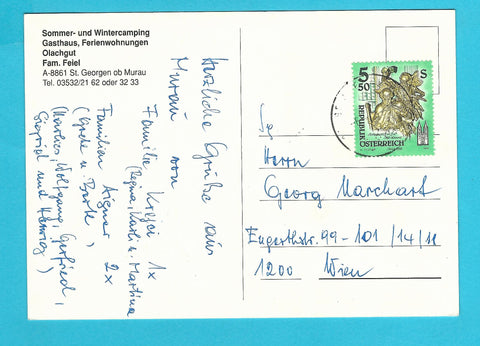 Sommer- und Wintercamping
Gasthaus, Ferienwohnungen
Olachgut
Fam. Feiel
A-8861 St. Georgen ob Murau
Tel. 03532/21 62 oder 32 33
Herzliche Grüße aus
Murau von
Familie 1x
(Regina, Karli u. Martina
Familien Aigner 2x
(
Wolfgang, Gerfried,
Siegrid und
5
50
S
REPUBLIK
ÖSTERREICH
Herrn
Georg Marchart
Engerthstr. 99-101/14/11
1200 Wien